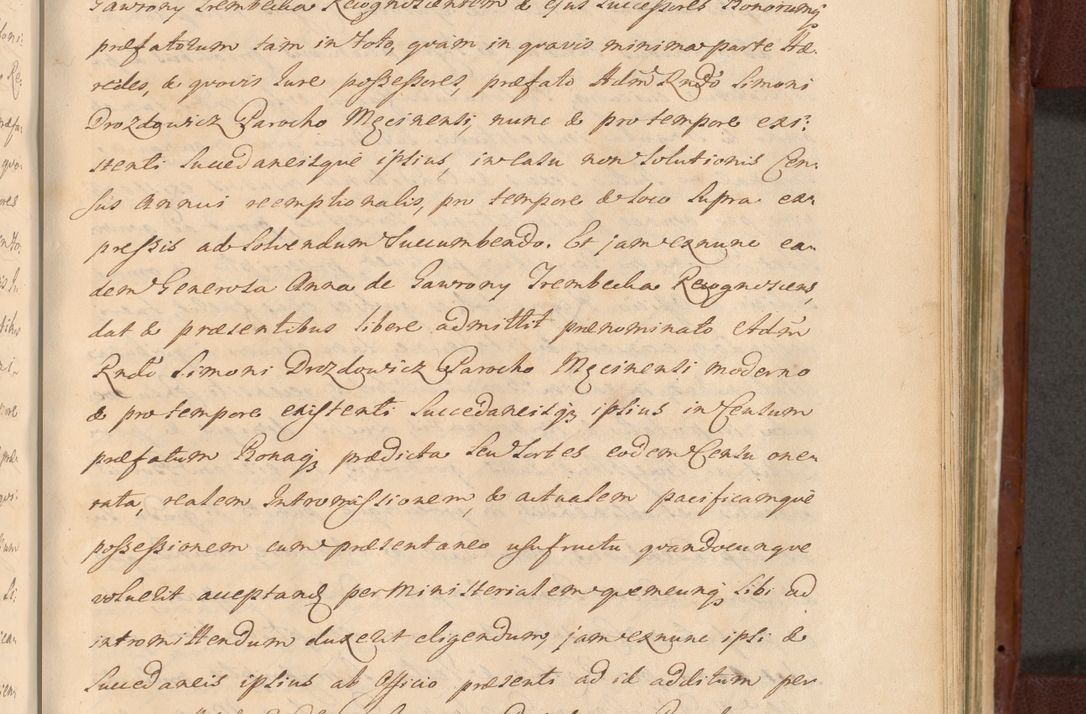 Gawrony Trembecka Recognoscentem & ejus Successores Bonorumq;
præfatorum tam in toto, quàm in quavis minima parte Hæ-
redes, & quovis Jure possessores, præfato Adm Rndo Simoni
Drozdowicz Parocho Męcinensi, nunc & pro tempore exi-
stenti Succedaneisque ipsius, in casu non Solutionis Cen-
sus Annui reemptionalis, pro tempore & loco Supra ex-
pressis ad Solvendum Succumbendo. Et jam exnunc ea-
dem Generosa Anna de Gawrony Trembecka Recognoscens,
dat & præsentibus libere admittit prænominato Adm
Rndo Simoni Drozdowicz Parocho Męcinensi moderno
& pro tempore existenti Succedaneisq; ipsius in Censum
præfatum Bonaq; prædicta Seu Sortes eodem Censu one-
rata, realem Intromissionem, & actualem pacificamque
possessionem cum præsentaneo usufructu quandocunque
voluerit acceptand per Ministerialem quemcunq; Sibi ad
intromittendum duxerit eligendum, jam exnunc ipsi &
Succedaneis ipsius ab Officio præsenti ad id additum per